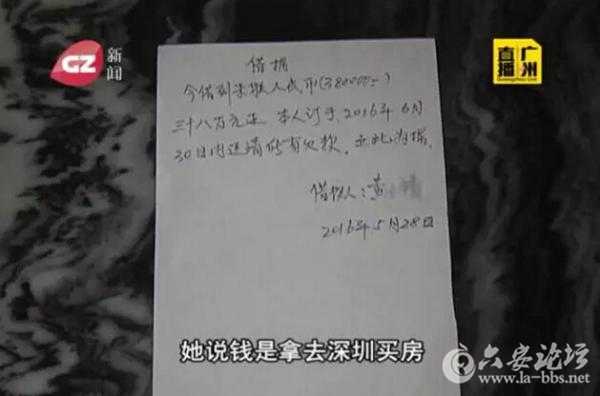 GZ 新闻
直播 广州
Guangzhou Live
借据
今借到 人民币(380000=)
三十八万元正 本人订于2016年6月
30日内还清所有欠款,立此为据。
借款人:黄
2016年5月28日
她说钱是拿去深圳买房
六安论坛
www.la-bbs.net